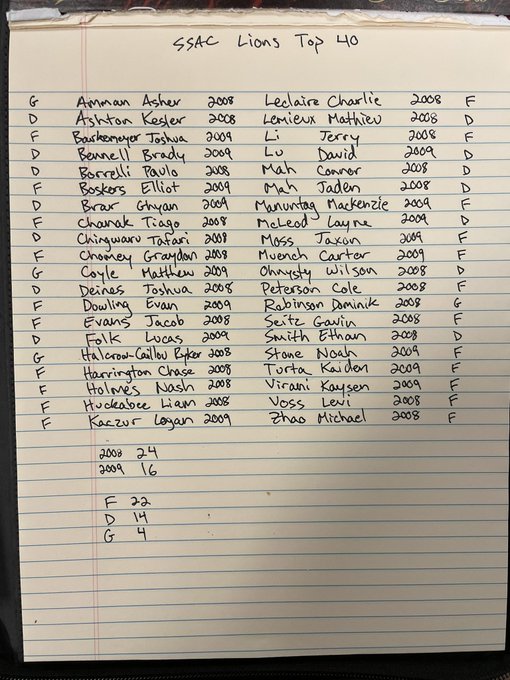 SSAC Lions Top 40
G Amman Asher 2008 Leclaire Charlie 2008 F
D Ashton Kesler 2008 Lemieux Mathieu 2008 D
F Barkemeyer Joshua 2009 Li Jerry 2008 F
D Bennell Brady 2009 Lu David 2009 D
D Borrelli Paulo 2008 Mah Connor 2008 D
F Boskers Elliot 2009 Mah Jaden 2008 D
D Brar Ghyan 2009 Manuntag Mackenzie 2009 F
F Chanak Tiago 2008 McLeod Layne 2009 D
D Chingwaru Tafari 2008 Moss Jaxon 2009 F
F Chomey Graydon 2008 Muench Carter 2009 F
G Coyle Matthew 2009 Ohnysty Wilson 2008 D
D Deines Joshua 2008 Peterson Cole 2008 F
F Dowling Evan 2009 Robinson Dominik 2008 G
F Evans Jacob 2008 Seitz Gavin 2008 F
D Folk Lucas 2009 Smith Ethan 2008 D
G Halcrow-Caillou Ryker 2008 Stone Noah 2009 F
F Harrington Chase 2008 Turta Kaiden 2009 F
F Holmes Nash 2008 Virani Kaysen 2009 F
F Huckabee Liam 2008 Voss Levi 2008 F
F Kaczur Logan 2009 Zhao Michael 2008 F
2008 24
2009 16
F 22
D 14
G 4